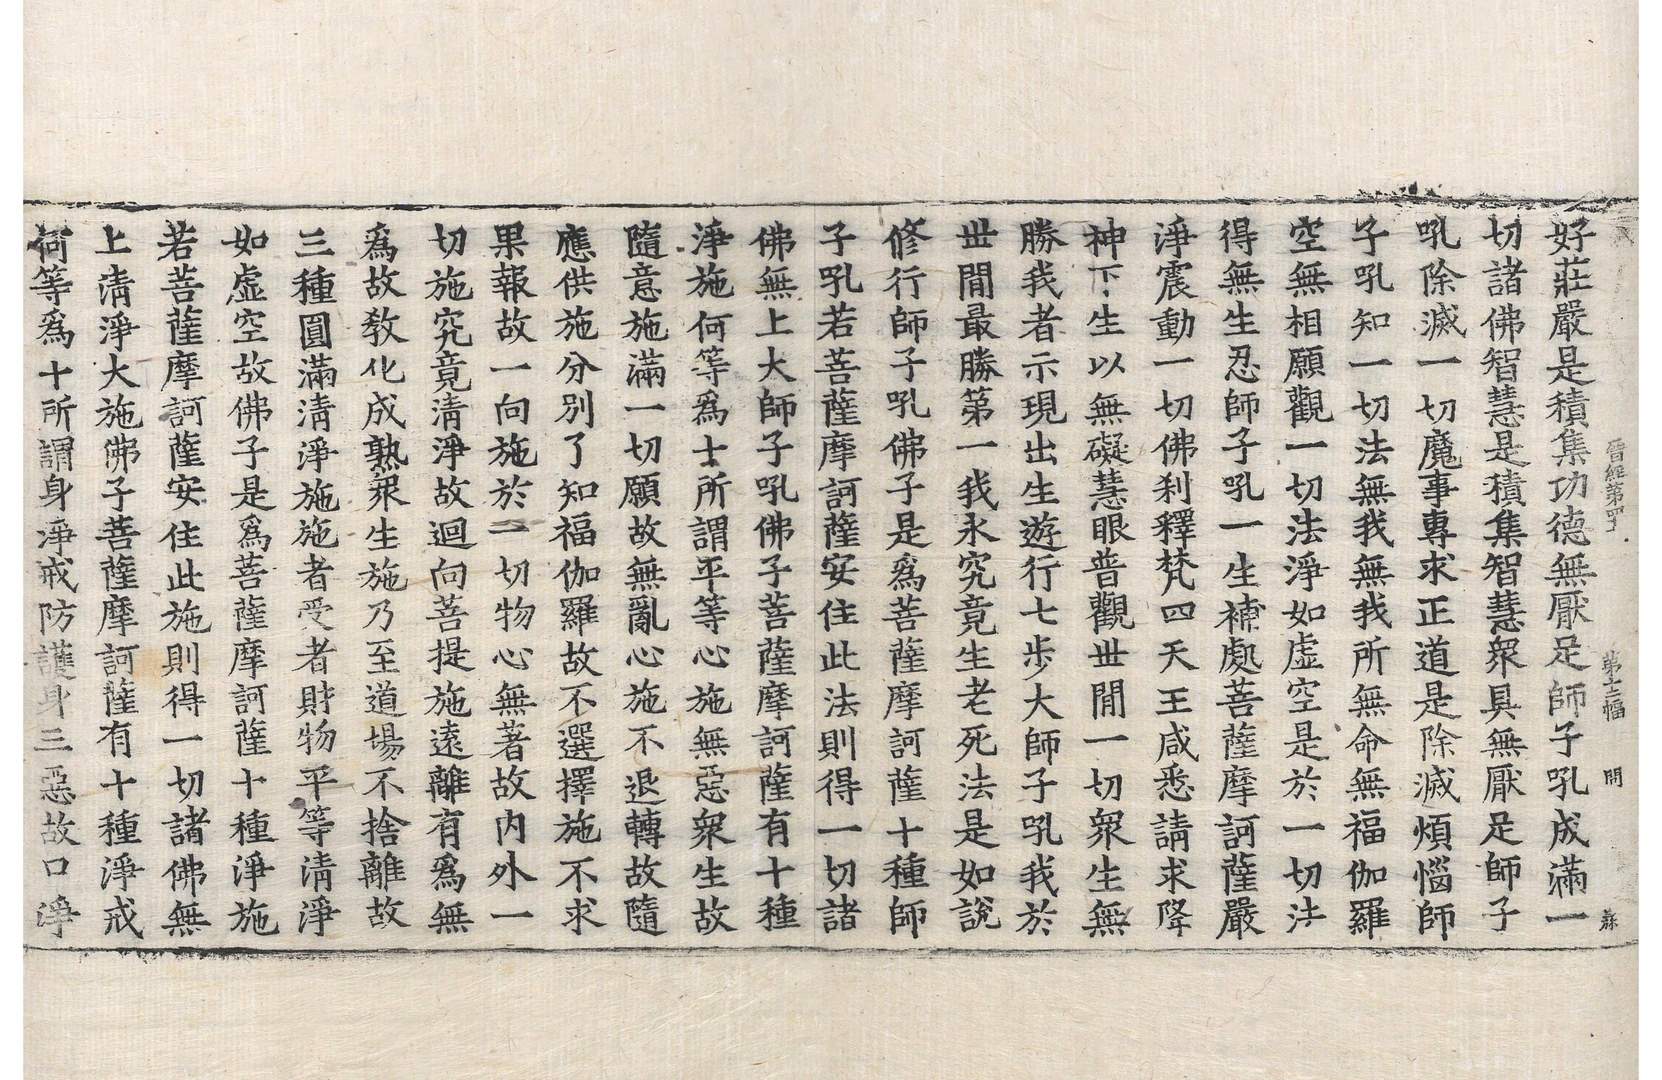 晉經第四十 第十三幅 問 蔴
好莊嚴是積集功德無厭足師子吼成滿一
切諸佛智慧是積集智慧衆具無厭足師子
吼除滅一切魔事專求正道是除滅煩惱師
子吼知一切法無我無我所無命無福伽羅
空無相願觀一切法淨如虛空是於一切法
得無生忍師子吼一生補處菩薩摩訶薩嚴
淨震動一切佛刹釋梵四天王咸悉請求降
神下生以無礙慧眼普觀世閒一切衆生無
勝我者示現出生遊行七步大師子吼我於
世閒最勝第一我永究竟生老死法是如說
修行師子吼佛子是爲菩薩摩訶薩十種師
子吼若菩薩摩訶薩安住此法則得一切諸
佛無上大師子吼佛子菩薩摩訶薩有十種
淨施何等爲十所謂平等心施無惡衆生故
隨意施滿一切願故無亂心施不退轉故隨
應供施分別了知福伽羅故不選擇施不求
果報故一向施於一切物心無著故內外一
切施究竟淸淨故迴向菩提施遠離有爲無
爲故敎化成熟衆生施乃至道場不捨離故
三種圓滿淸淨施施者受者財物平等淸淨
如虛空故佛子是爲菩薩摩訶薩十種淨施
若菩薩摩訶薩安住此施則得一切諸佛無
上淸淨大施佛子菩薩摩訶薩有十種淨戒
何等爲十所謂身淨戒防護身三惡故口淨